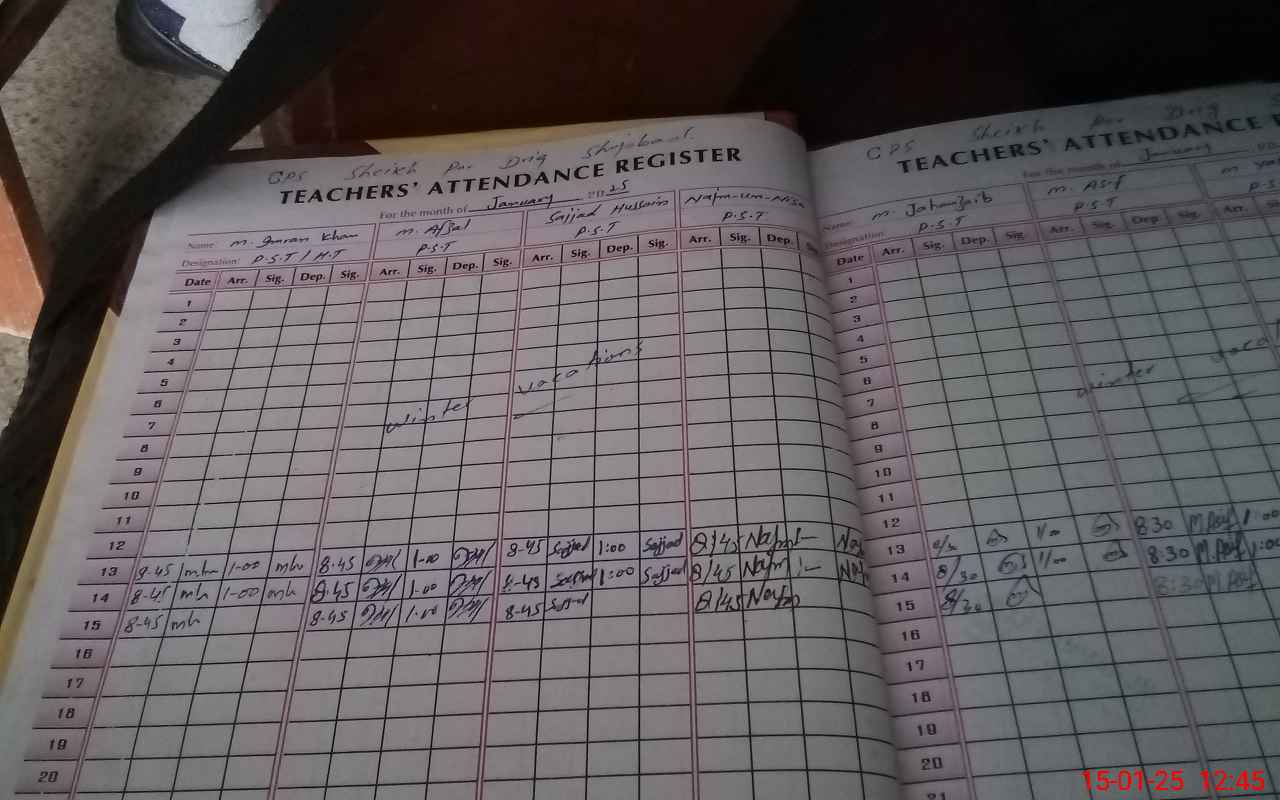 GPS Sheikh Pur Drig Shujabad.
TEACHERS' ATTENDANCE REGISTER
For the month of January 2025
Name M. Imran Khan M. Afzal Sajjad Hussain Najm-um-Nisa
Designation: P.S.T / H.T P.S.T P.S.T P.S.T
Date Arr. Sig. Dep. Sig. Arr. Sig. Dep. Sig. Arr. Sig. Dep. Sig. Arr. Sig. Dep.
1
2
3
4
5
6
7
8
9
10
11
12
winter vacations
13 8-45 1-00 8-45 1-00 8-45 Sajjad 1:00 Sajjad 8/45 Najm
14 8-45 1-00 8-45 1-00 8-45 Sajjad 1:00 Sajjad 8/45 Najm
15 8-45 8-45 1-00 8-45 Sajjad 8/45 Najm
16
17
18
19
20
GPS Sheikh Pur Drig
TEACHERS' ATTENDANCE
For the month of January
Name M. Jahanzaib M. Asif M
Designation P.S.T P.S.T
Date Arr. Sig. Dep. Sig. Arr. Sig. Dep. Sig. Arr. Sig.
1
2
3
4
5
6
7
8
9
10
11
12
winter
13 8/30 1/00 8:30 M.Asif 1:00
14 8/30 1/00 8:30 M.Asif 1:00
15 8/30 8:30 M.Asif
16
17
18
19
20
21
15-01-25 12:45